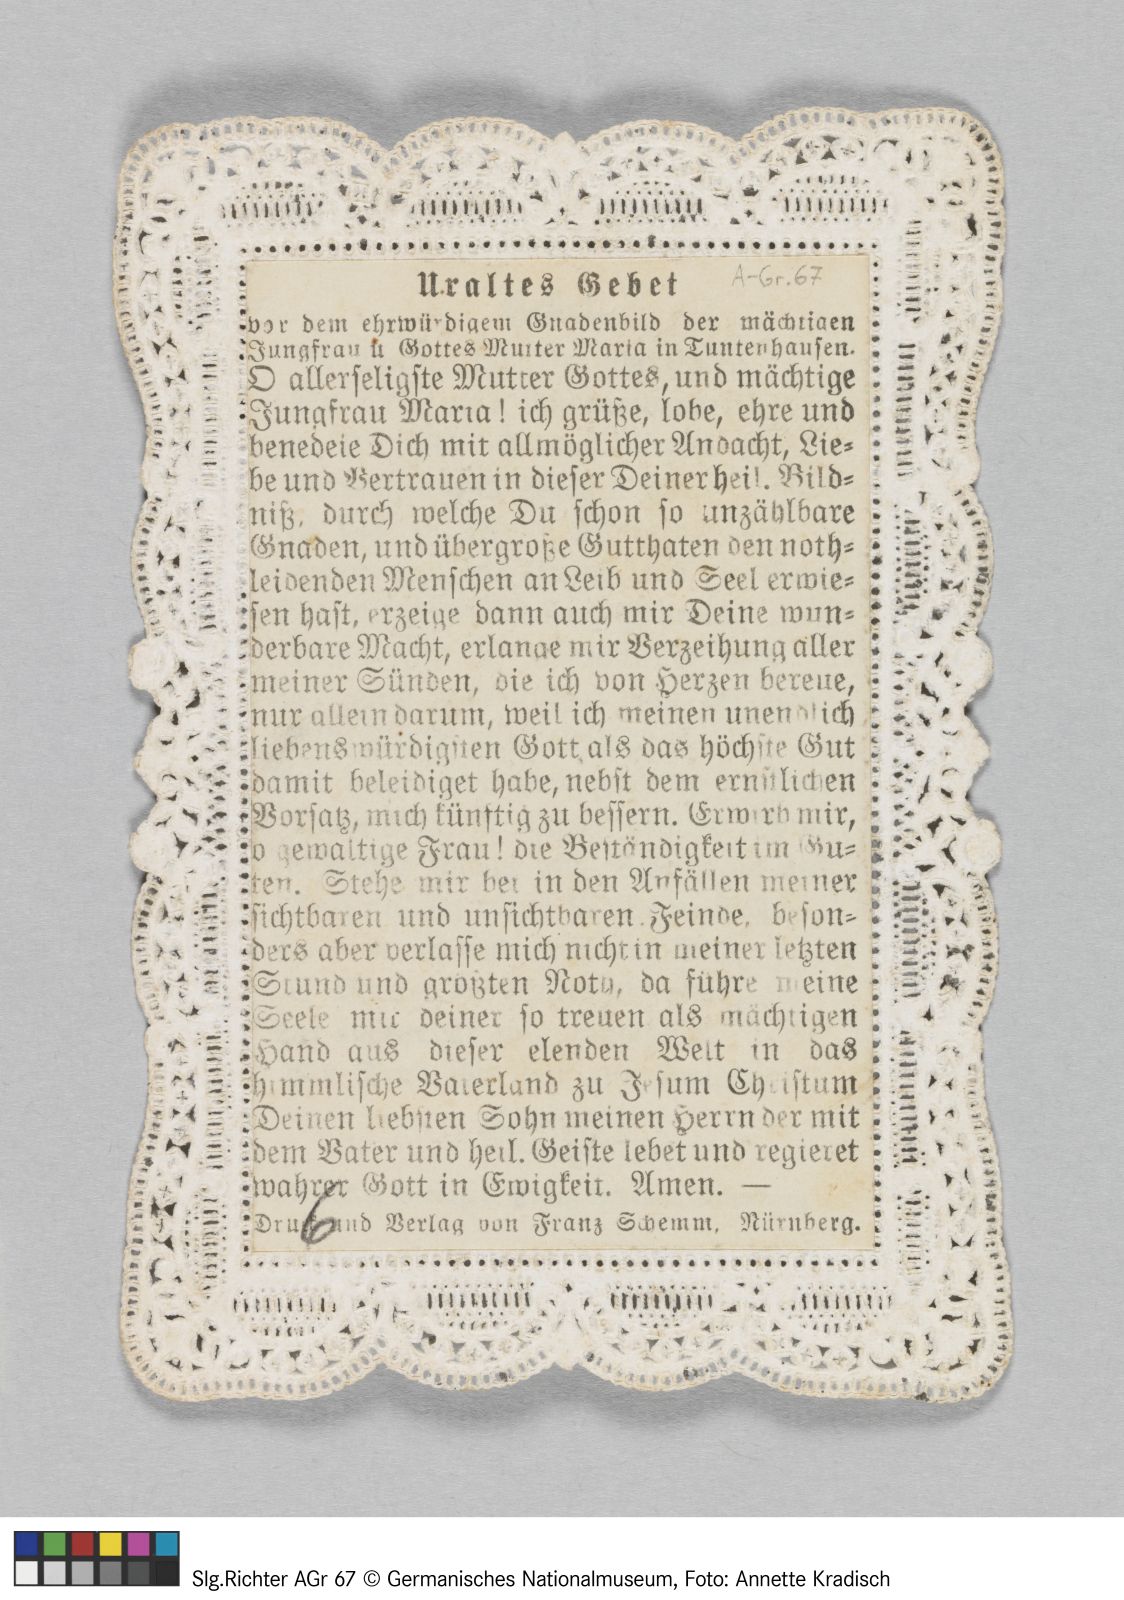 Uraltes Gebet
A-Gr. 67
vor dem ehrwürdigem Gnadenbild der mächtigen
Jungfrau u Gottes Mutter Maria in Tuntenhausen.
O allerseligste Mutter Gottes, und mächtige
Jungfrau Maria! ich grüße, lobe, ehre und
benedeie Dich mit allmöglicher Andacht, Lie-
be und Vertrauen in dieser Deiner heil. Bild-
niß, durch welche Du schon so unzählbare
Gnaden, und übergroße Gutthaten den noth-
leidenden Menschen an Leib und Seel erwie-
sen hast, erzeige dann auch mir Deine wun-
derbare Macht, erlange mir Verzeihung aller
meiner Sünden, die ich von Herzen bereue,
nur allein darum, weil ich meinen unendlich
liebenswürdigsten Gott als das höchste Gut
damit beleidiget habe, nebst dem ernstlichen
Vorsatz, mich künftig zu bessern. Erwirb mir,
o gewaltige Frau! die Beständigkeit im Gu-
ten. Stehe mir bei in den Anfällen meiner
sichtbaren und unsichtbaren Feinde, beson-
ders aber verlasse mich nicht in meiner letzten
Stund und größten Noth, da führe meine
Seele mit deiner so treuen als mächtigen
Hand aus dieser elenden Welt in das
himmlische Vaterland zu Jesum Christum
Deinen liebsten Sohn meinen Herrn der mit
dem Vater und heil. Geiste lebet und regieret
wahrer Gott in Ewigkeit. Amen. —
6
Druck und Verlag von Franz Schemm, Nürnberg.
Slg.Richter AGr 67 © Germanisches Nationalmuseum, Foto: Annette Kradisch